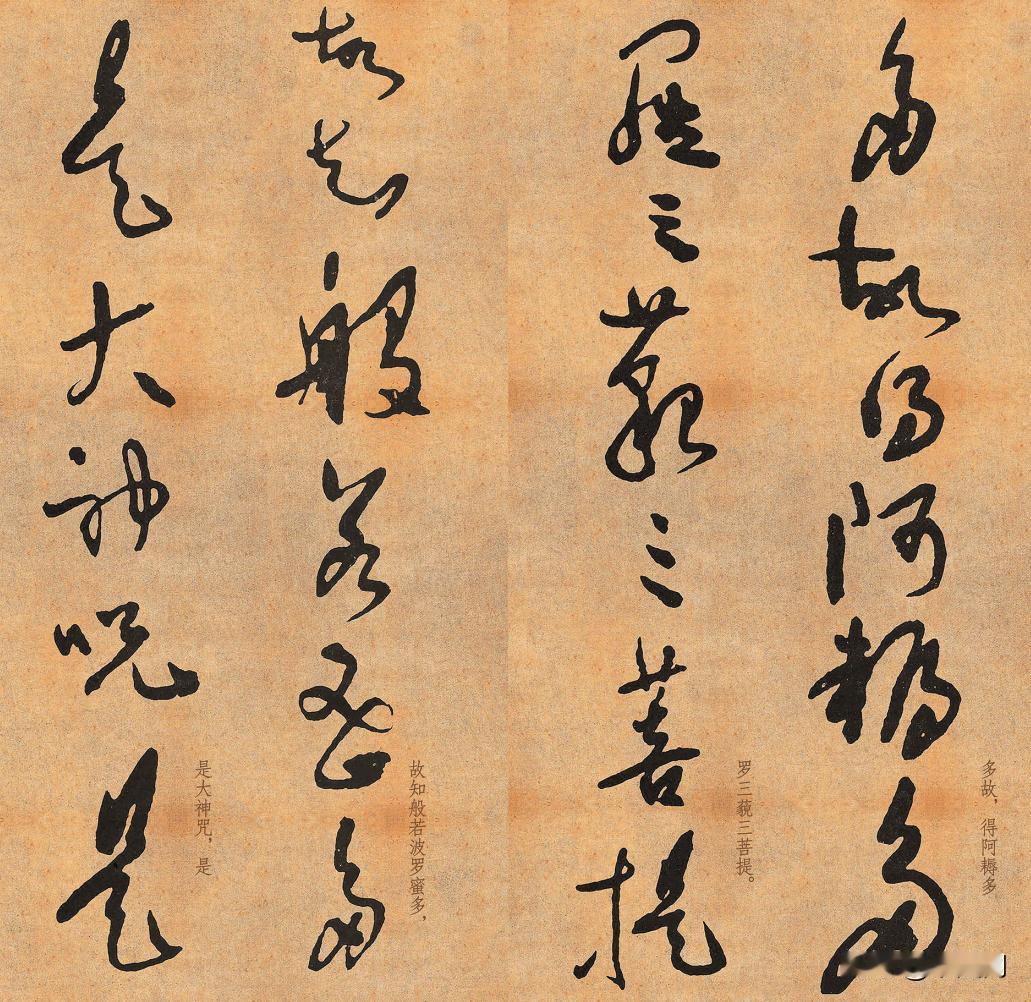 多故，得阿耨多
多故得阿耨多
罗三藐三菩提。
羅三藐三菩提
故知般若波罗蜜多，
故知般若蜜多
是大神咒，是
是大神呪是